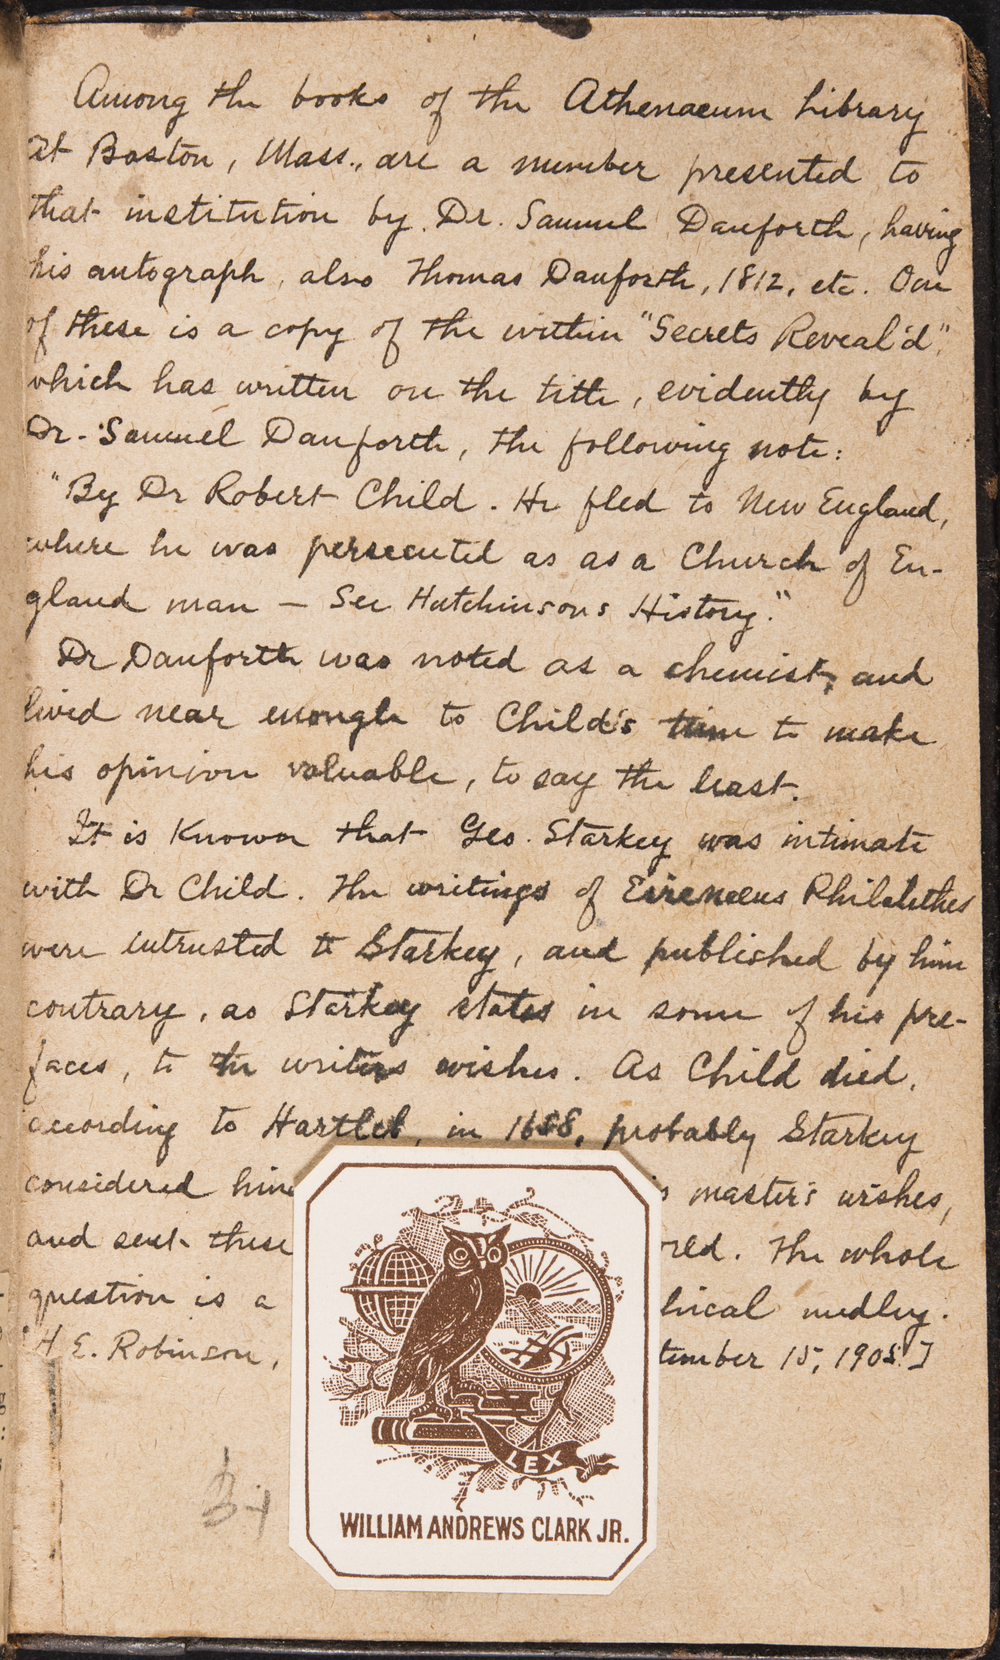 Among the books of the Athenaeum Library
at Boston, Mass., are a number presented to
that institution by Dr. Samuel Danforth, having
his autograph, also Thomas Danforth, 1812, etc. One
of these is a copy of the within "Secrets Reveal'd",
which has written on the title, evidently by
Dr. Samuel Danforth, the following note:
"By Dr Robert Child. He fled to New England,
where he was persecuted as as a Church of En-
gland man — See Hutchinsons History."
Dr Danforth was noted as a chemist, and
lived near enough to Child's time to make
his opinion valuable, to say the least.
It is known that Geo. Starkey was intimate
with Dr Child. The writings of Eireneus Philalethes
were intrusted to Starkey, and published by him
contrary, as Starkey states in some of his pre-
faces, to the writers wishes. As Child died,
according to Hartleb, in 16 probably Starkey
considered him master's wishes,
and sent these The whole
question is a medley.
H. E. Robinson, tember 15, 1905]
LEX
WILLIAM ANDREWS CLARK JR.